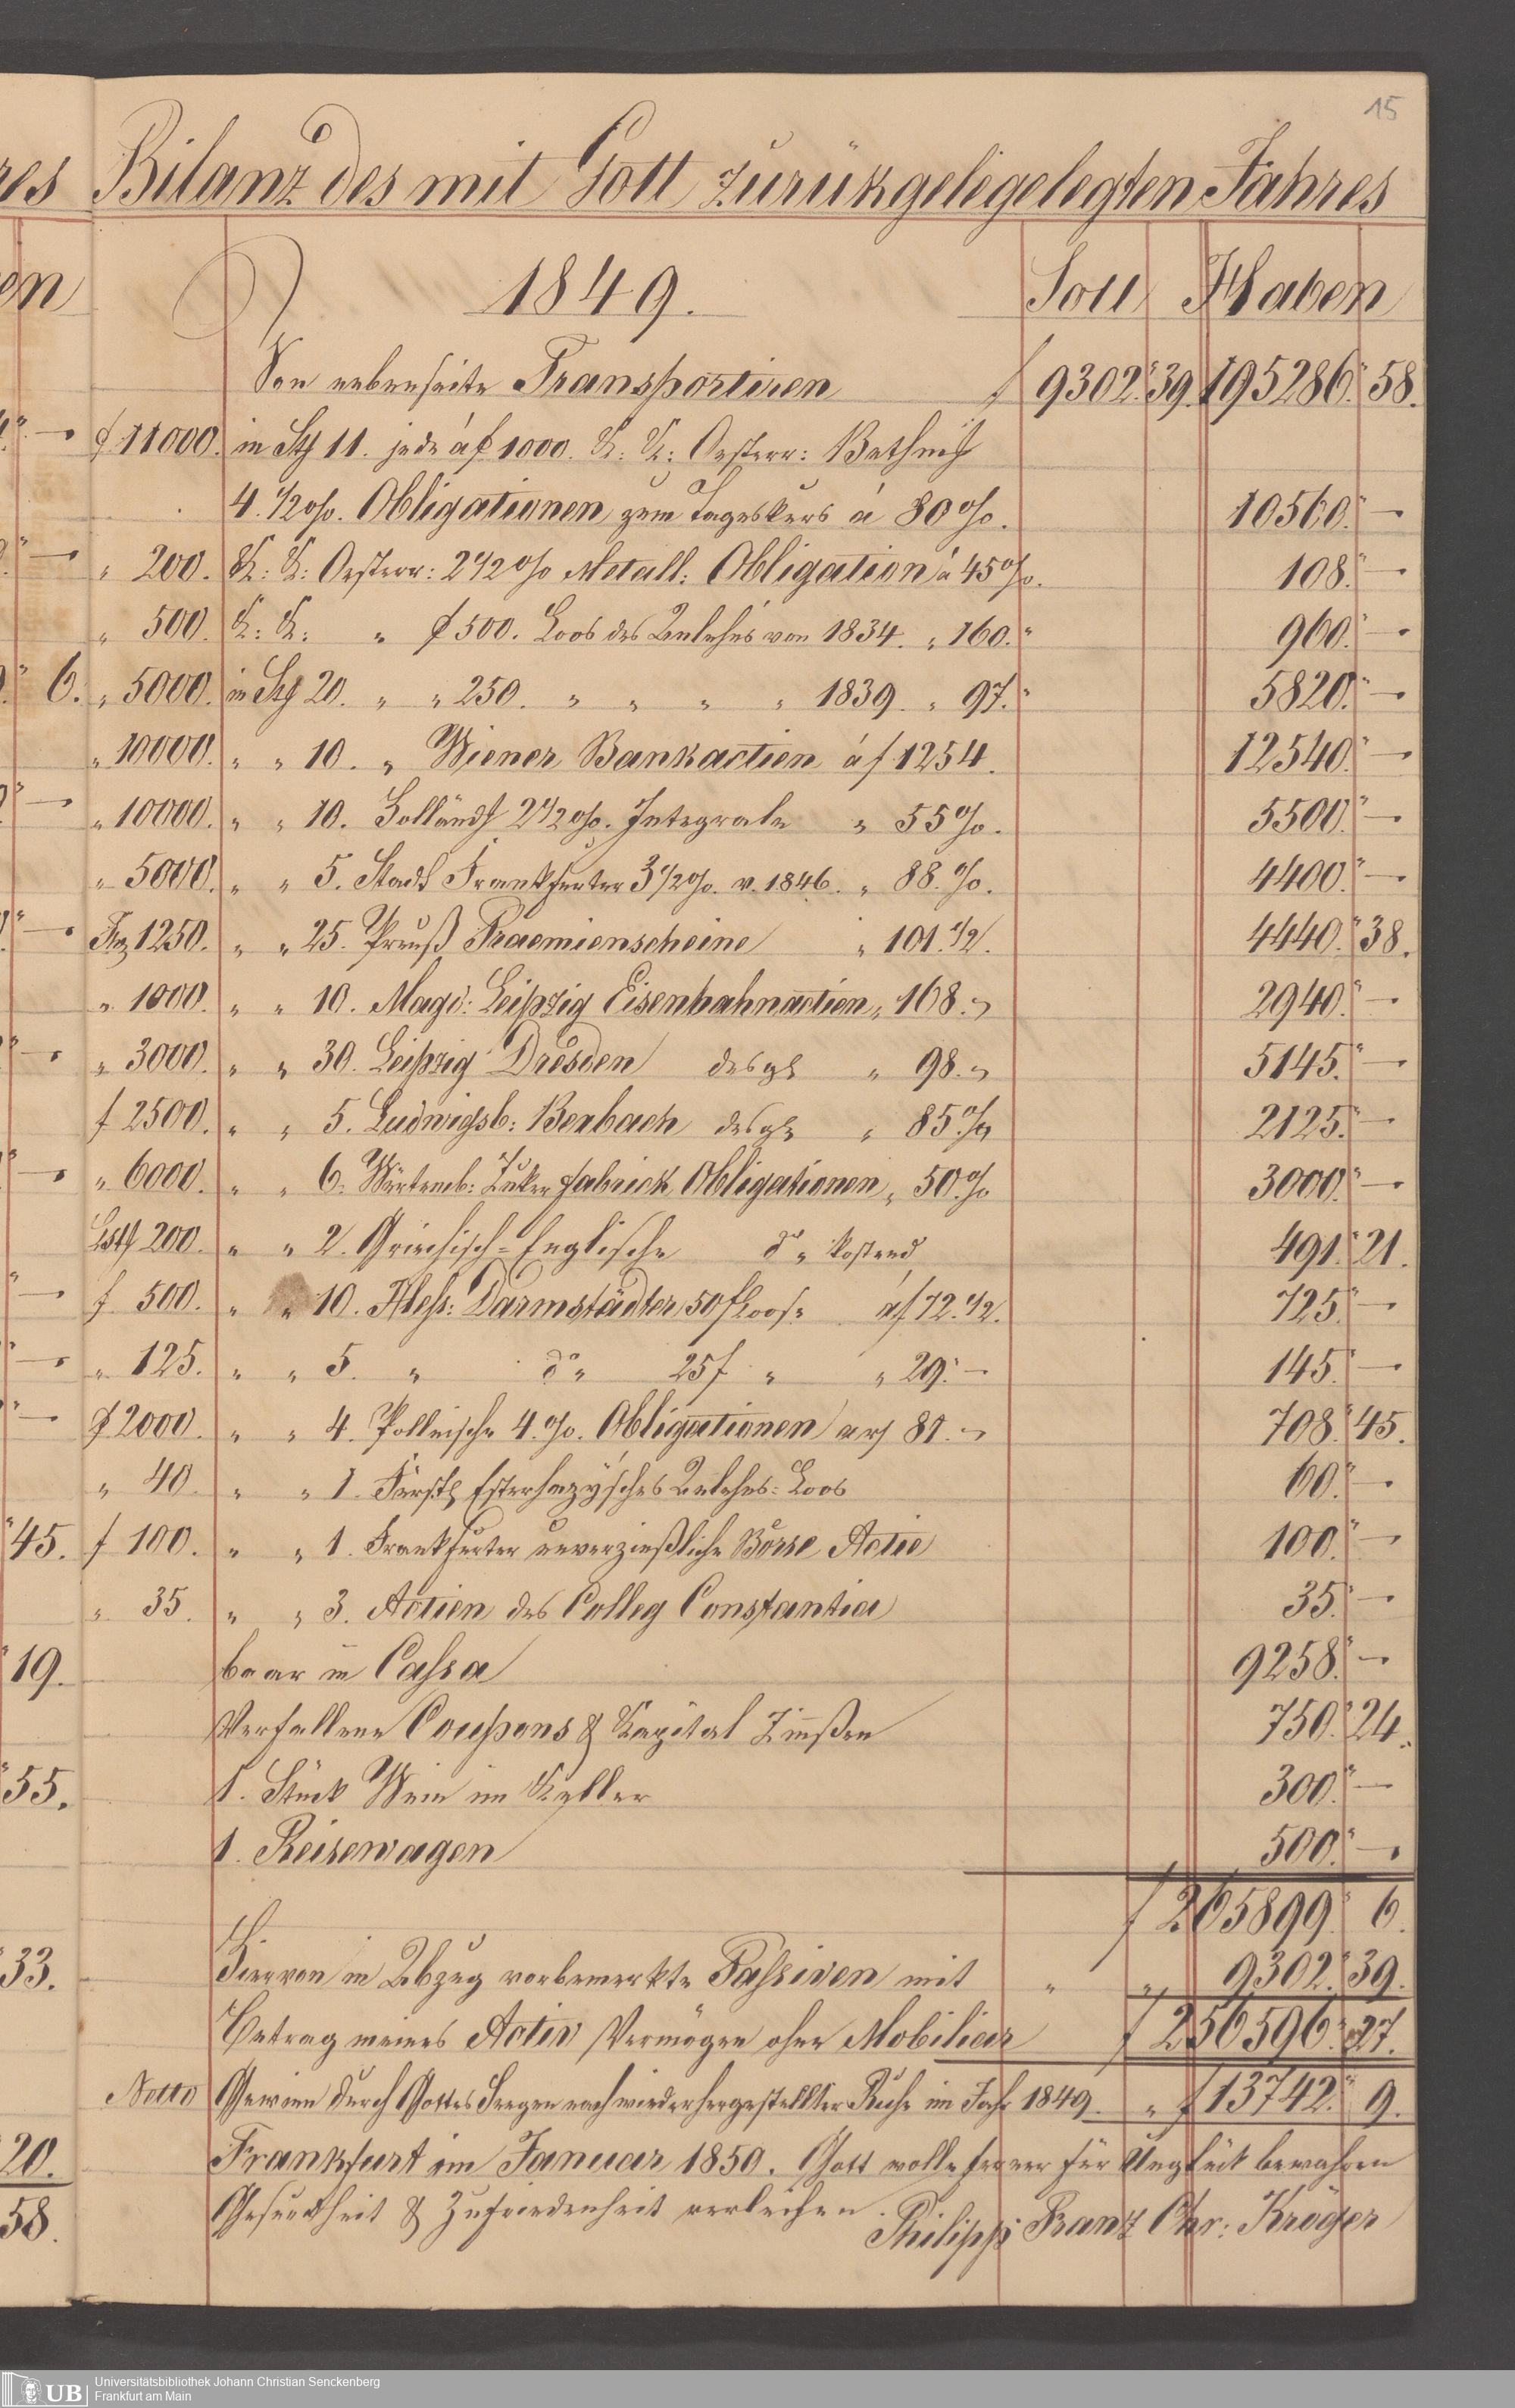 15
res Bilanz des mit Gott zurükgelegelegten Jahres
en 1849. Soll Haben
Von nebenseite Transportiren f 9302. 39. 195286. 58.
f 11000. in Stk 11. jede á f 1000. K: K: Oesterr: Bethm:
4.1/2 o/o. Obligationen zum Tageskurs á 80 o/o. 10560. —
" 200. K: K: Oesterr: 2 1/2 o/o Metall: Obligation á 45 o/o. 108. —
" 500. K: K: " f 500. Loos des Anlehns von 1834. " 160. " 960. —
6. " 5000. in Stk 20. " " 250. " " " " 1839. " 97. " 5820. —
" 10000. " " 10. " Wiener Bankactien á f 1254. 12540. —
" 10000. " " 10. Holländ 2 1/2 o/o. Integrale " 55 o/o. 5500. —
" 5000. " " 5. Stadt Frankfurter 3 1/2 o/o. v. 1846. " 88. o/o. 4400. —
1250. " " 25. Preuß Praemienscheine " 101.1/2. 4440. 38.
" 1000. " " 10. Magd: Leipzig Eisenbahnactien " 168. 2940. —
" 3000. " " 30. Leipzig Dresden desgl " 98. 5145. —
f 2500. " " 5. Ludwigsb: Bexbach desgl " 85. o/o 2125. —
" 6000. " " 6. Würtemb: Zuker fabrick Obligationen " 50. o/o 3000. —
Lstl 200. " " 2. Griechisch-Englische do " kostend 491. 21.
f 500. " " 10. Hess: Darmstädter 50 f Loose á f 72.1/2. 725. —
" 125. " " 5. " do " 25 f " " 29. — 145. —
f 2000. " " 4. Pollnische 4. o/o. Obligationen 81. 708. 45.
" 40. " " 1. Fürstl Esterhazy'sches Anlehns: Loos 60. —
45. f 100. " " 1. Frankfurter unverzinßliche Börse Actie 100. —
" 35. " " 3. Actien des Colleg Constantia 35. —
19. baar in Cassa 9258. —
Verfallene Coupons & Kapital Zinßen 750. 24.
55. 1. Stück Wein im Keller 300. —
1. Reisewagen 500. —
f 265899. 6.
33. Hiervon in Abzug vorbemerkte Passiven mit " " 9302. 39.
Betrag meines Activ Vermögen ohne Mobiliar f 256596. 27.
Netto Gewinn durch Gottes Seegen nach wiederhergestellter Ruhe im Jahr 1849. " f 13742. 9.
20. Frankfurt im Januar 1850. Gott wolle ferner für Unglük bewahren
58. Gesundheit & Zufriedenheit verleihen.
Philipp Franz Chr: Kröger
UB Universitätsbibliothek Johann Christian Senckenberg
Frankfurt am Main